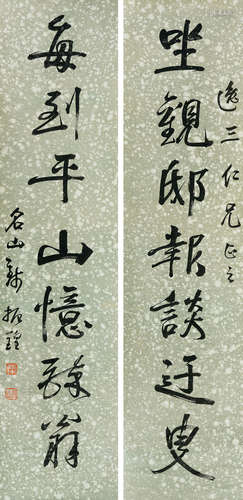 逸三仁兄正之
坐觀邸報談迂叟
每到平山憶醉翁
名山錢振鍠